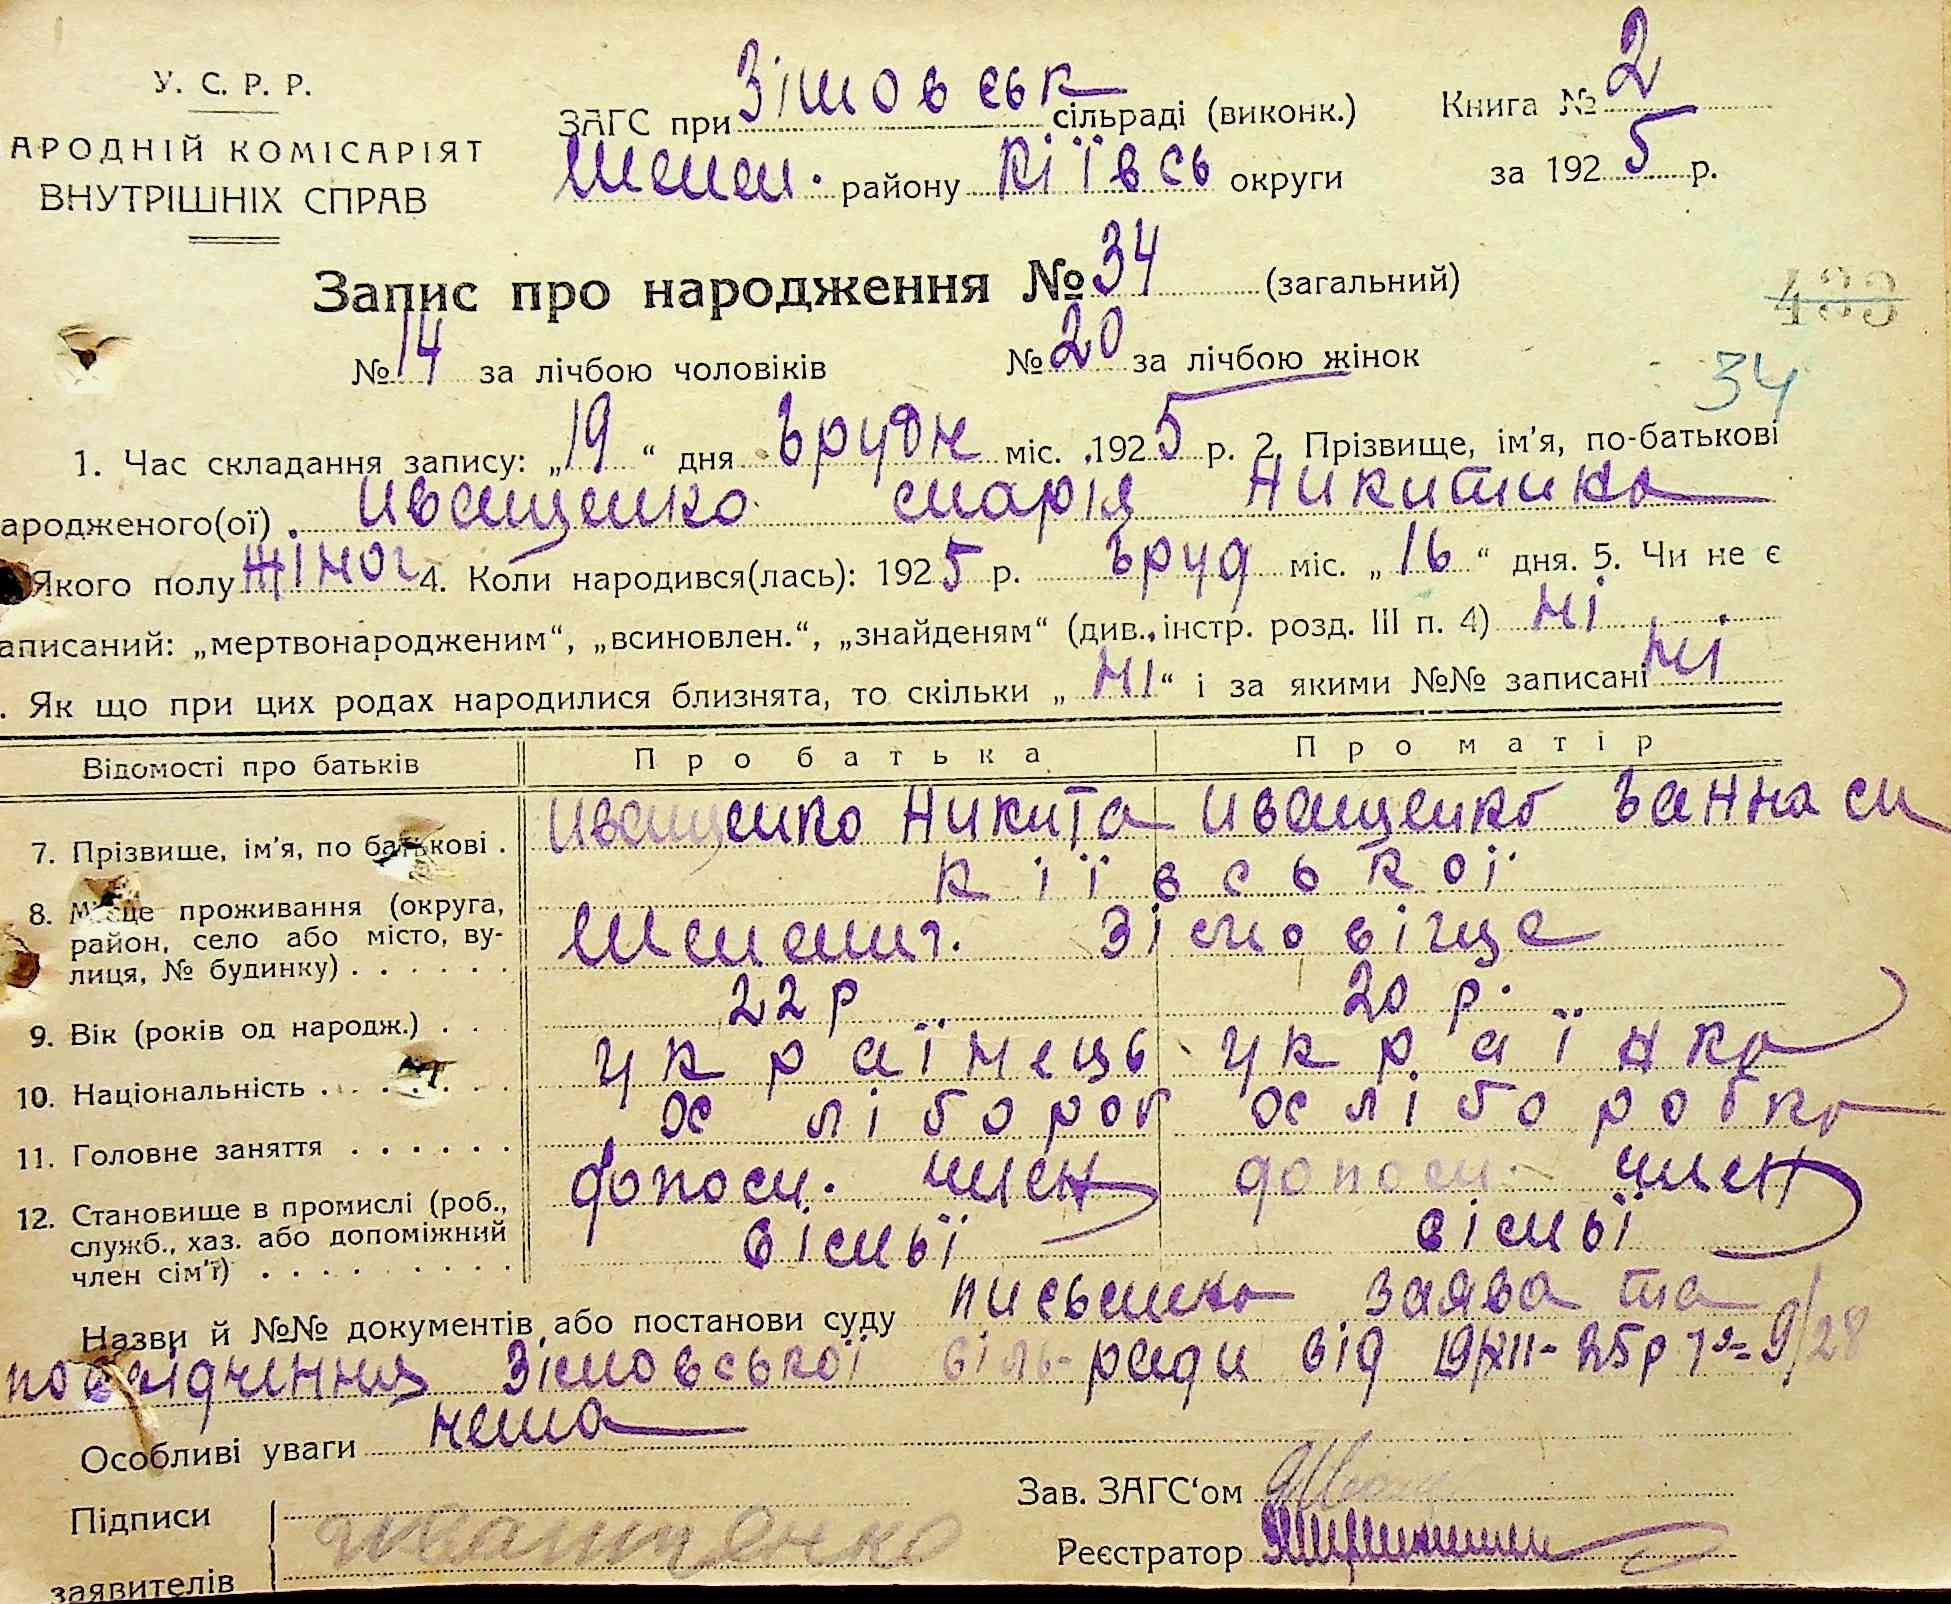 У. С. Р. Р.
АРОДНІЙ КОМІСАРІЯТ
ВНУТРІШНІХ СПРАВ
ЗАГС при Зімовськ сільраді (виконк.)
району Кіївсь округи
Книга № 2
за 1925 р.
Запис про народження № 34 (загальний)
433
№ 14 за лічбою чоловіків № 20 за лічбою жінок
34
1. Час складання запису: „19“ дня Ґрудн міс. 1925 р. 2. Прізвище, ім'я, по-батькові
ародженого(ої) Иващенко Марія Никитика
Якого полу Жіноч 4. Коли народився(лась): 1925 р. Ґруд міс. „16“ дня. 5. Чи не є
аписаний: „мертвонародженим“, „всиновлен.“, „знайденям“ (див. інстр. розд. III п. 4) Ні
. Як що при цих родах народилися близнята, то скільки „Ні“ і за якими №№ записані Ні
Відомості про батьків Про батька Про матір
7. Прізвище, ім'я, по батькові . Иващенко Никита Иващенко Ґанна М
Кіївської
8. Місце проживання (округа, район, село або місто, вулиця, № будинку) . . . . . . Зімовіще
9. Вік (років од народж.) . . . 22 р 20 р.
10. Національність . . . . . . українець українка
11. Головне заняття . . . . . . хлібороб хліборобка
12. Становище в промислі (роб., служб., хаз. або допоміжний член сім'ї) . . . . . . . . допом. член сімьї допом. член сімьї
Назви й №№ документів або постанови суду письмика заява та
посвідчення Зімовської сіль-ради від 19/XII-25р № 9/28
Особливі уваги нема
Підписи
заявителів
Иващенко
Зав. ЗАГС'ом
Реєстратор